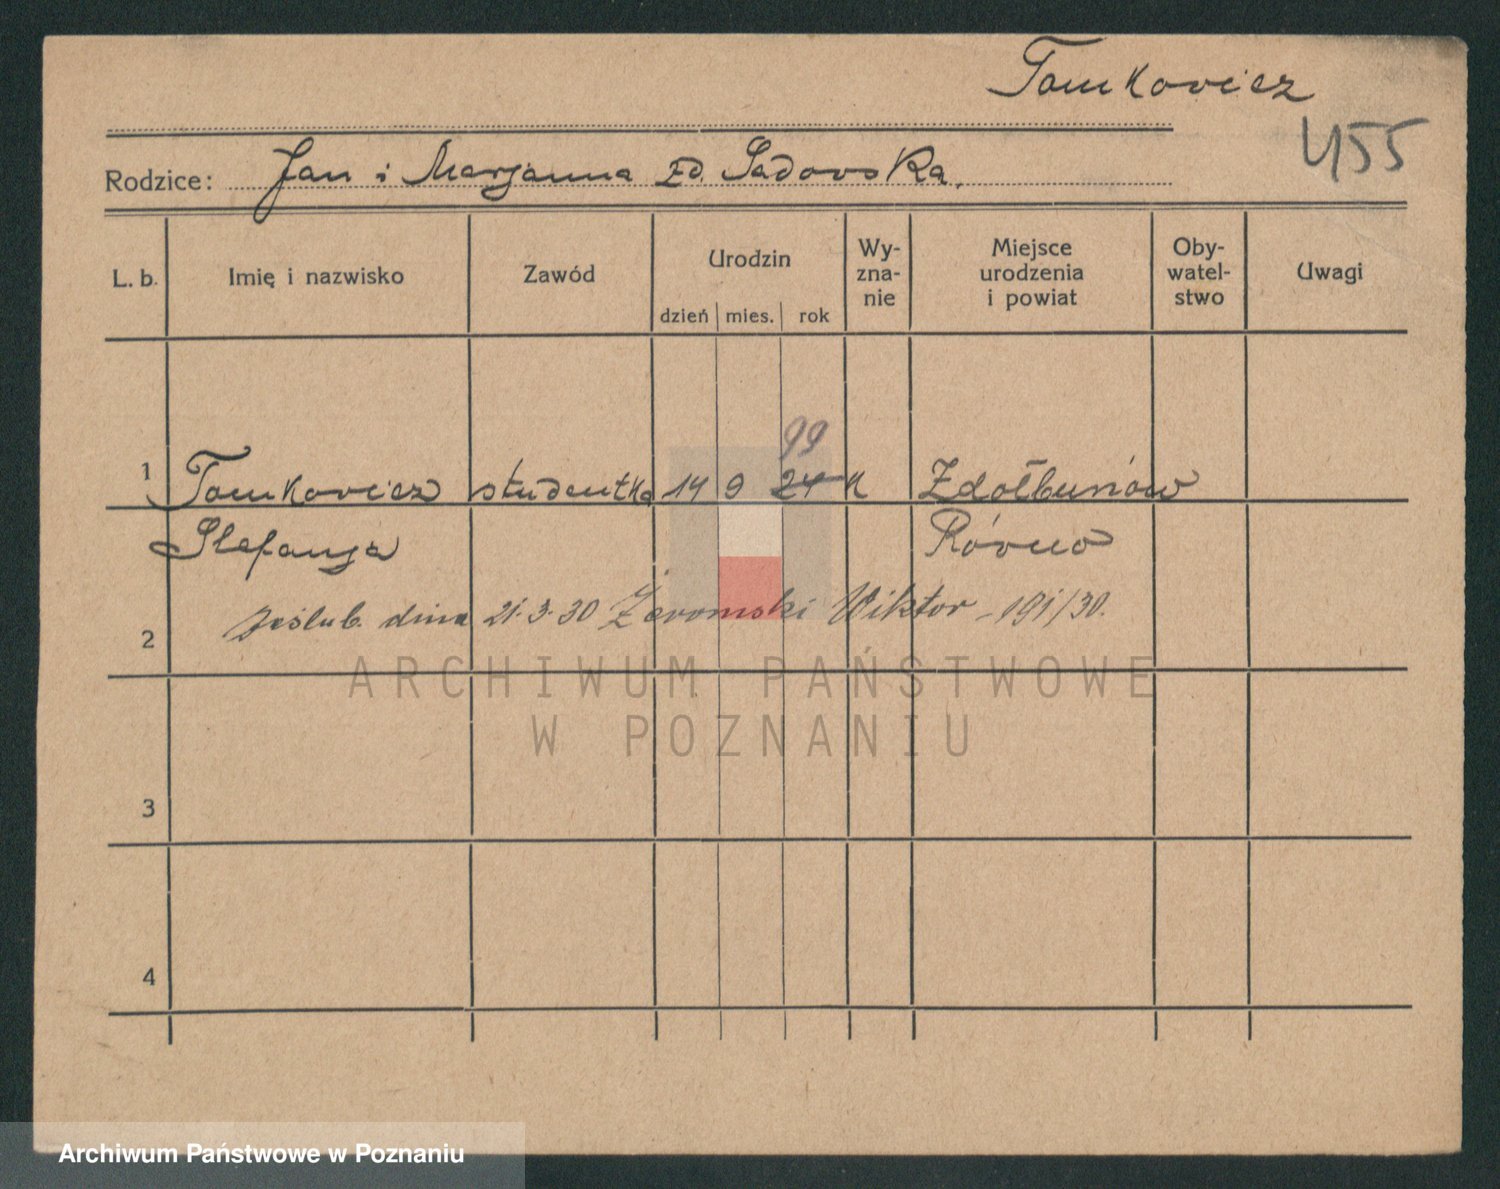 Tomkowicz
455
Rodzice: Jan i Marjanna zd. Sadowska.
L. b. Imię i nazwisko Zawód Urodzin dzień mies. rok Wyznanie Miejsce urodzenia i powiat Obywatelstwo Uwagi
99
1 Tomkowicz studentka 14 9 24 K Zdołbunów
Stefanja Równo
2 dnia 21.3.30 Żeromski Wiktor - 191/30.
3
4
ARCHIWUM PAŃSTWOWE
W POZNANIU
Archiwum Państwowe w Poznaniu